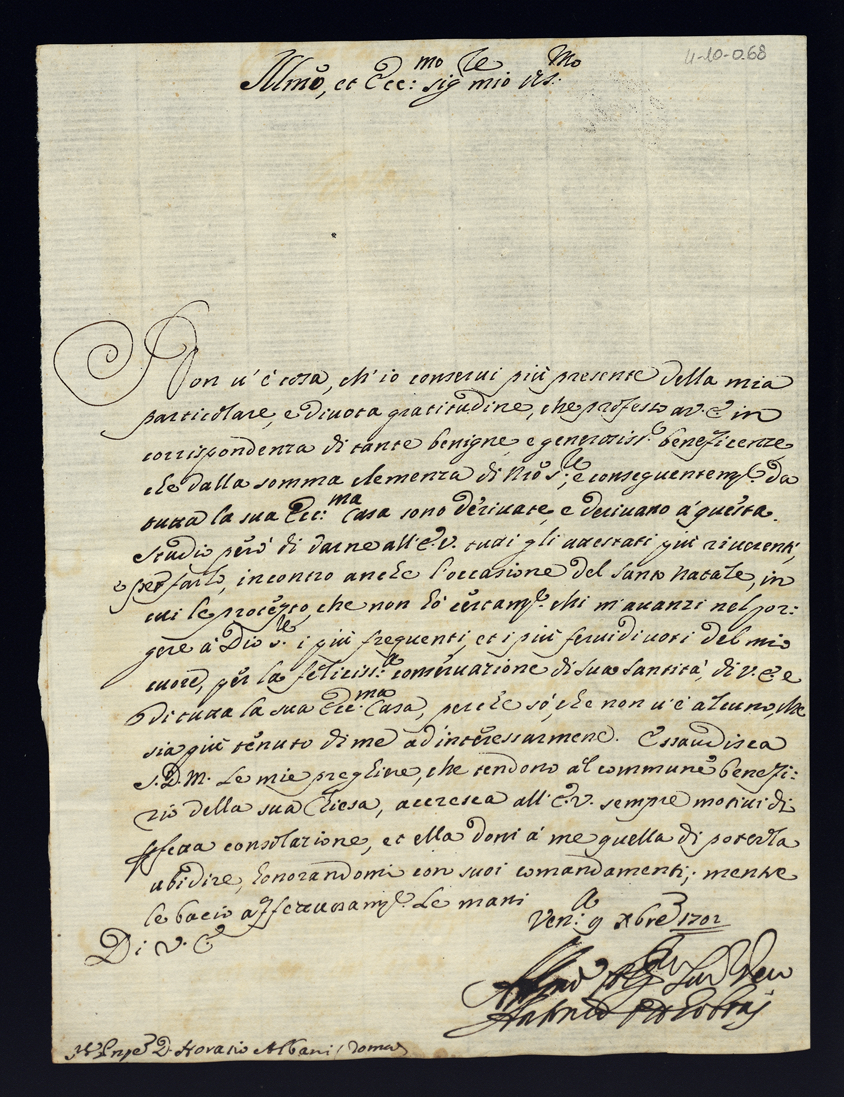 4-10-068
Illmo, et Ecc:mo sig.re mio oss:mo
Non v'è cosa, ch'io conservi più presente della mia
particolare, e divota gratitudine, che professo a V. E. in
corrispondenza di tante benigne, e generosiss.e beneficenze,
che dalla somma clemenza di Nro S.re, e conseguentem.e da
tutta la sua Ecc:ma Casa sono derivate, e derivano à questa.
Studio però di darne all'E.V. tutti gli attestati più riverenti,
e per farlo, incontro anche l'occasione del Santo Natale, in
cui le protesto, che non hò certam.e chi m'avanzi nel por:
gere à Dio S.re i più frequenti, et i più fervidi voti del mio
cuore, per la feliciss:a conservazione di Sua Santità, di V. E. e
di tutta la sua Ecc:ma Casa, perche sò, che non v'è alcuno, che
sia più tenuto di me ad interessarmene. Essaudisca
S.D.M. le mie preghiere, che tendono al commune benefi:
zio della sua Chiesa, accresca all'E.V. sempre motivi di
perfetta consolazione, et ella doni à me quella di poterla
ubidire, honorandomi con suoi comandamenti; mentre
le bacio affettuosam.e le mani
Ven:a 9 Xbre 1702
Di V. E.
Antonio
D. Horatio Albani / Roma